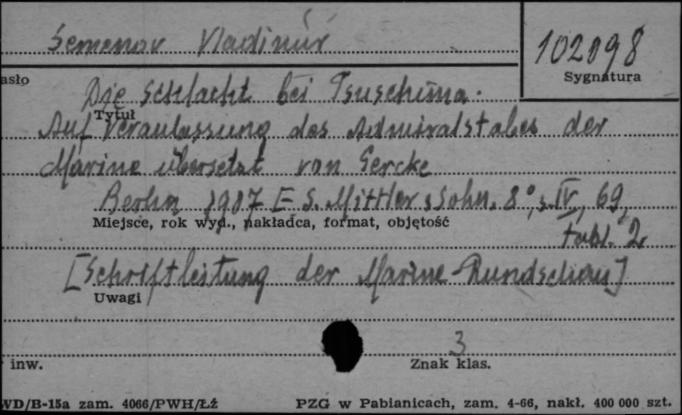 Semenov Vladimir
102098
Sygnatura
asło
Die Schlacht bei Tsuschima.
Tytuł
Auf Veranlassung des Admiralstabes der
Marine übersetzt von Gercke
Berlin 1907 E. S. Mittler u Sohn. 8°, s. IV, 69,
Miejsce, rok wyd., nakładca, format, objętość
tabl. 2
[Schriftleitung der Marine-Rundschau]
Uwagi
3
inw.
Znak klas.
WD/B-15a zam. 4066/PWH/Łź
PZG w Pabianicach, zam. 4-66, nakł. 400 000 szt.